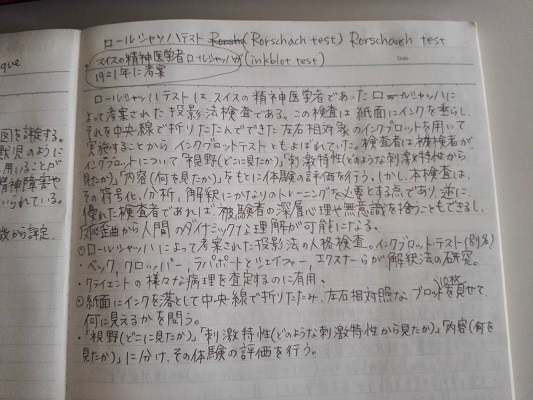 ロールシャッハテスト Rorsh (Rorschach test) Rorschach test
・スイスの精神医学者ロールシャッハが (inkblot test)
1921年に考案
Date
ロールシャッハテストは、スイスの精神医学者であったロールシャハに
よって考案された投影法検査である。この検査は紙面にインクを垂らし、
それを中央線で折りたたんでできた左右相対象のインクブロットを用いて
実施することから、インクブロットテストともよばれていた。検査者は被検者が、
インクブロットについて「視野(どこに見たか)」、「刺激特性(どのような刺激特性から
見たか)」、「内容(何を見たか)」をもとに体験の評価を行う。しかし、本検査は、
その符号化、分析、解釈にかなりのトレーニングを必要とする点であり、逆に、
優れた検査者であれば、被験者の深層心理や無意識を拾うこともできるし、
反応歪曲から人間のダイナミックな理解が可能になる。
①ロールシャッハによって考案された投影法の人格検査。インクブロットテスト(別名)
・ベック、クロッパー、ラパポートとシェイファー、エクスナーらが解釈法の研究。
・クライエントの様々な病理を査定するのに有用。
②紙面にインクを落として中央線で折りたたみ、左右相対照なブロットを10枚見せて、
何に見えるかを問う。
・「視野(どこに見たか)」、「刺激特性(どのような刺激特性から見たか)」、「内容(何を
見たか)」に分け、その体験の評価を行う。
que
図を評定する。
獣児のように
用いることが
精神障害や
いられている。
数から評定